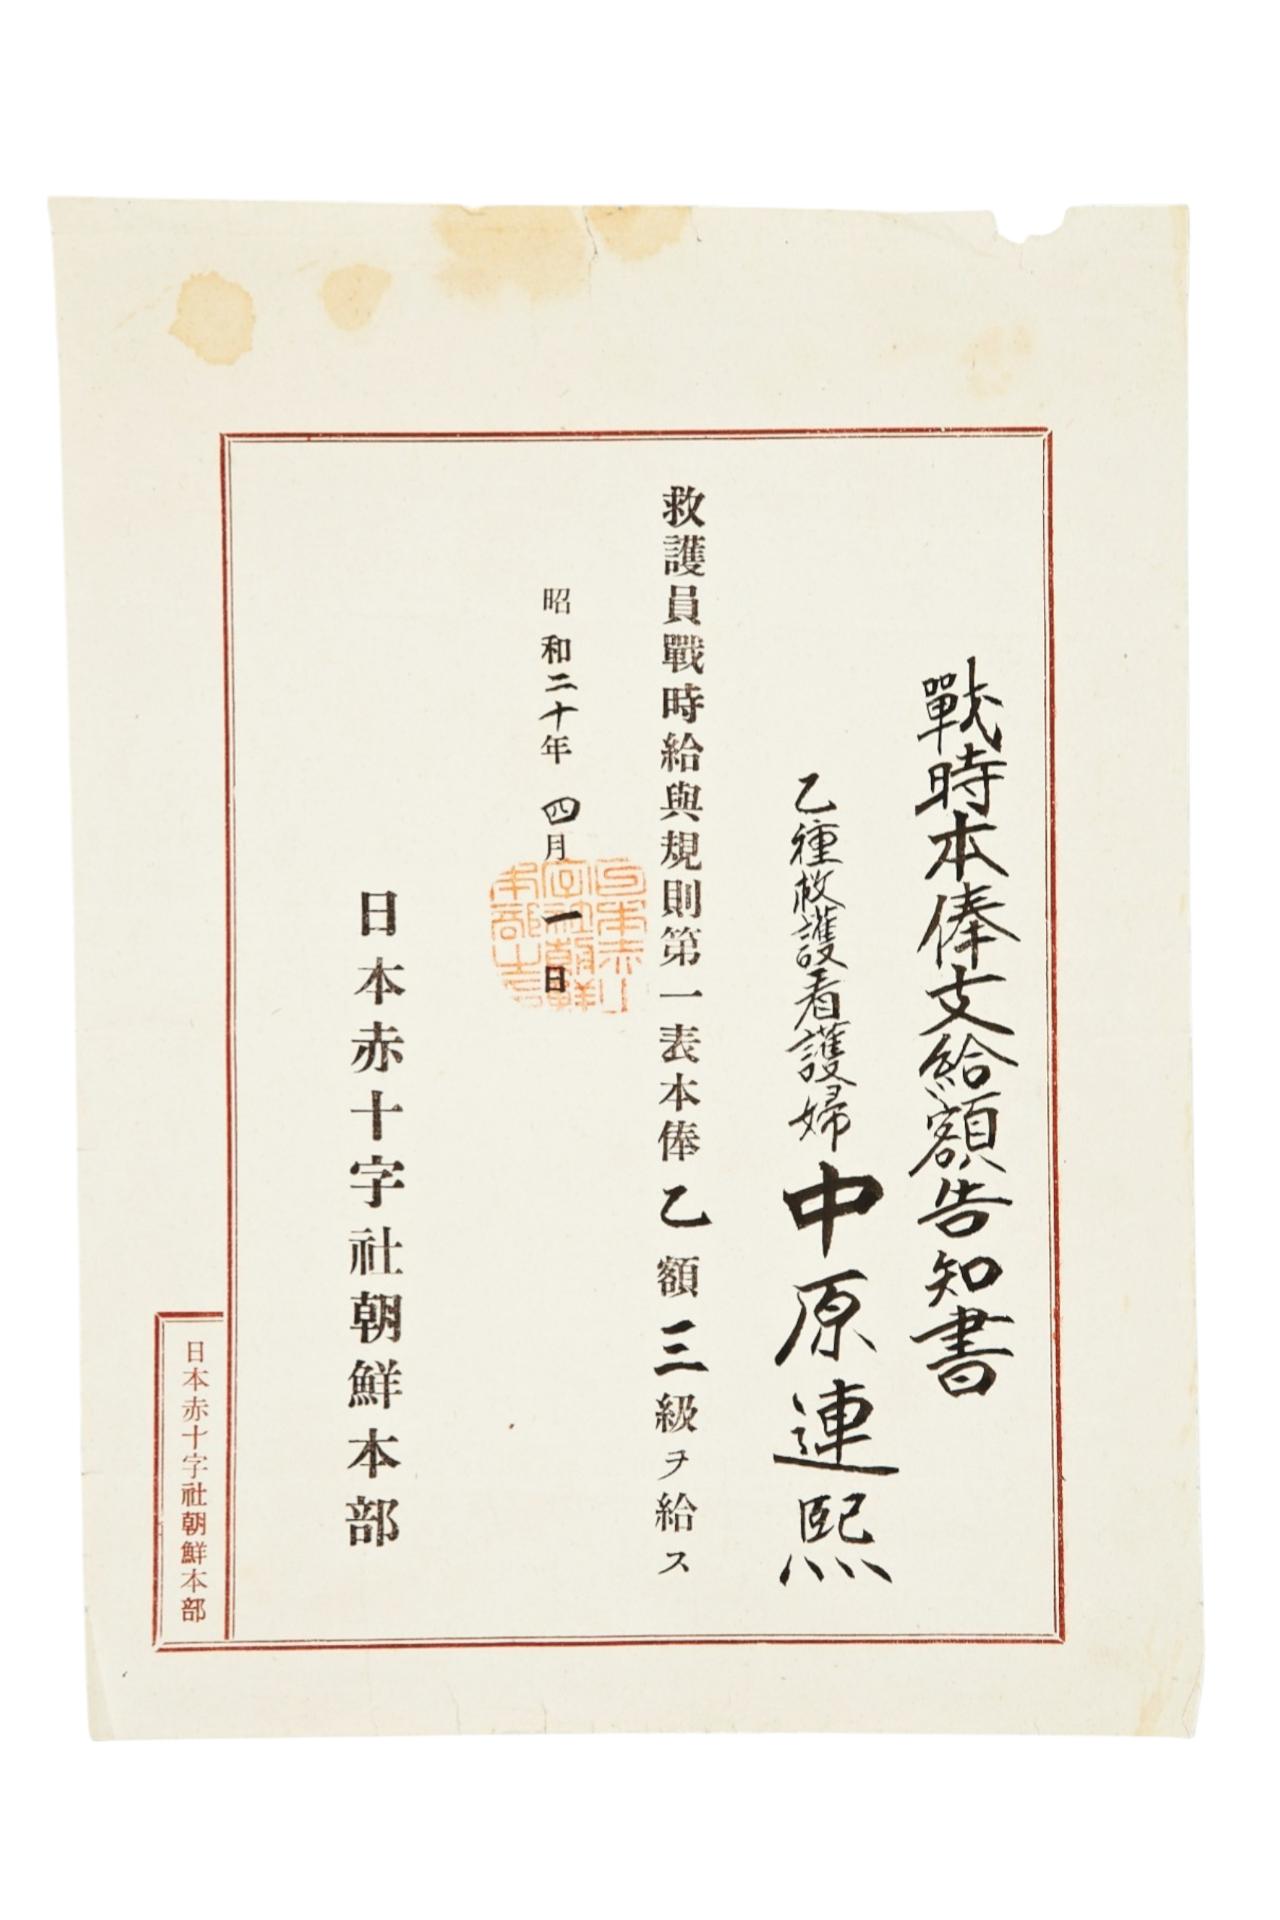 戰時本俸支給額告知書
乙種救護看護婦 中原連熙
救護員戰時給與規則第一表本俸乙額三級ヲ給ス
昭和二十年四月一日
日本赤十字社朝鮮本部
日本赤十字社朝鮮本部